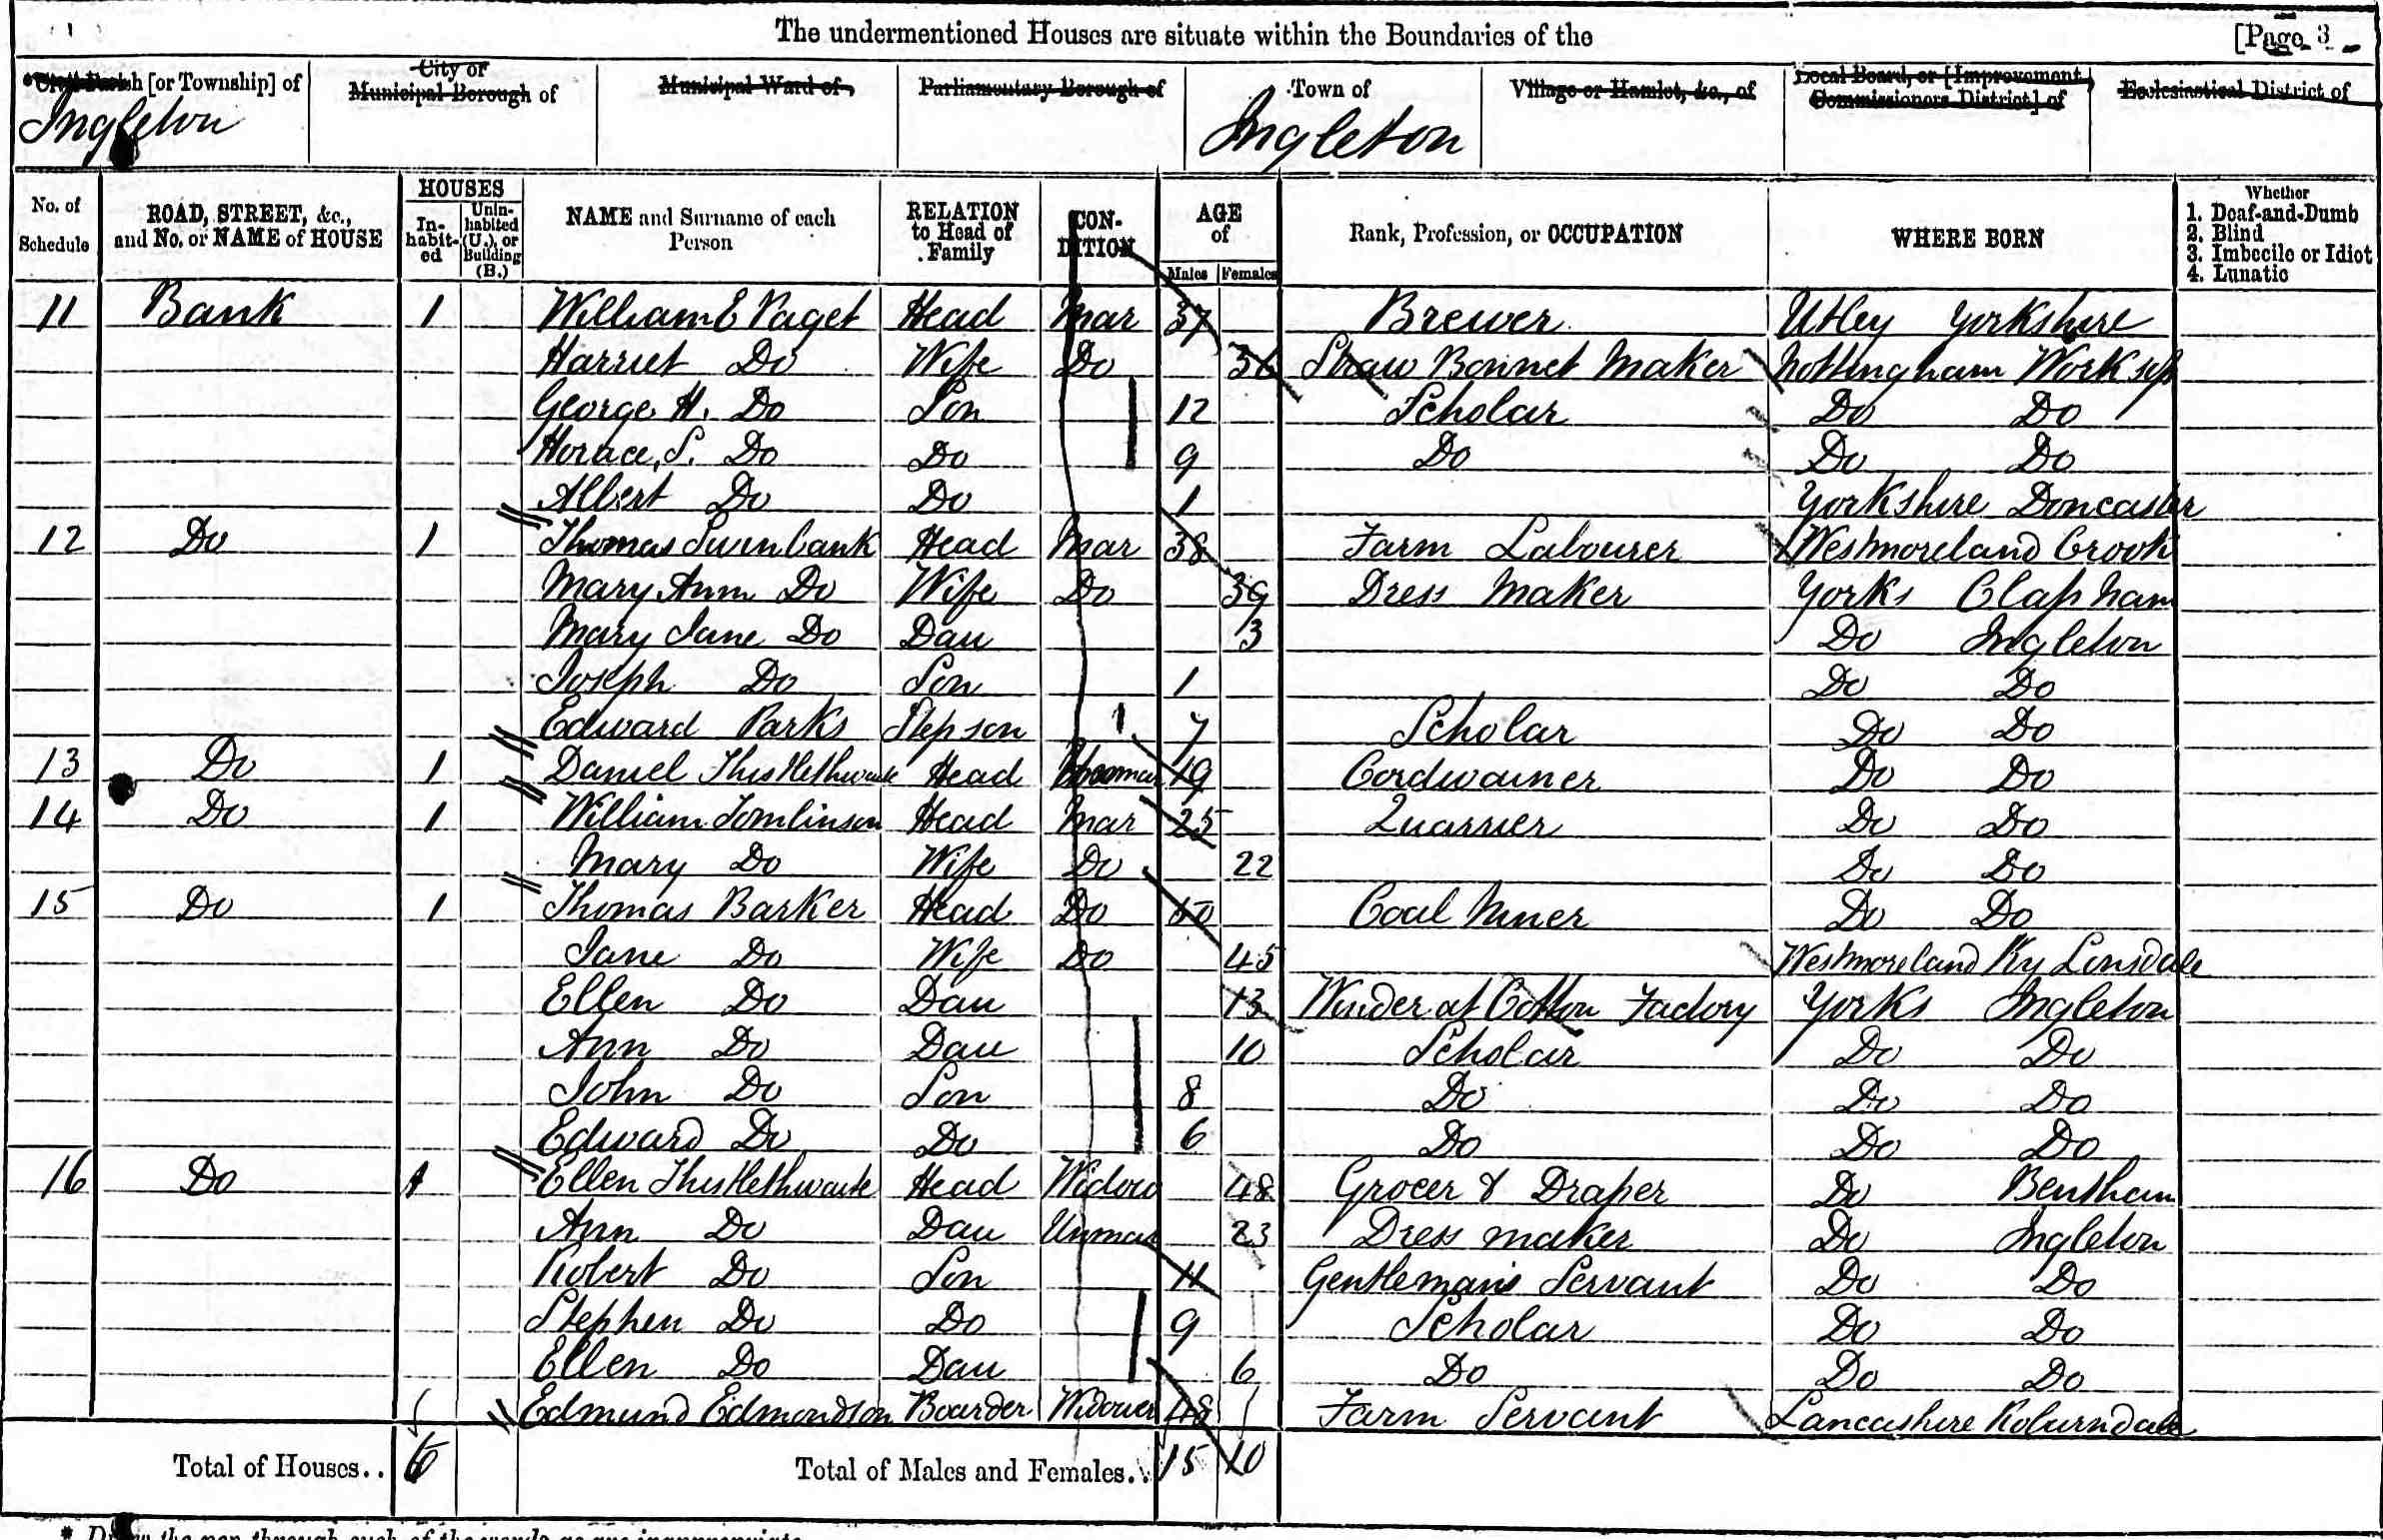 The undermentioned Houses are situate within the Boundaries of the [Page 3
Parish [or Township] of
City or Municipal Borough of
Municipal Ward of
Parliamentary Borough of
Town of
Village or Hamlet, &c., of
Local Board, or [Improvement Commissioners District] of
Ecclesiastical District of
Ingleton Ingleton
No. of Schedule
ROAD, STREET, &c., and No. or NAME of HOUSE
HOUSES
Inhabited
Uninhabited (U.), or Building (B.)
NAME and Surname of each Person
RELATION to Head of Family
CONDITION
AGE of
Males Females
Rank, Profession, or OCCUPATION
WHERE BORN
Whether
1. Deaf-and-Dumb
2. Blind
3. Imbecile or Idiot
4. Lunatic
11 Bank 1 William E Paget Head Mar 37 Brewer Utley Yorkshire
Harriet Do Wife Do 36 Straw Bonnet Maker Nottingham Worksop
George H. Do Son 12 Scholar Do Do
Horace S. Do Do 9 Do Do Do
Albert Do Do 1 Yorkshire Doncaster
12 Do 1 Thomas Swinbank Head Mar 38 Farm Labourer Westmoreland Crook
Mary Ann Do Wife Do 39 Dress Maker Yorks Clapham
Mary Jane Do Dau 3 Do Ingleton
Joseph Do Son 1 Do Do
Edward Parks Stepson 7 Scholar Do Do
13 Do 1 Daniel Thistlethwaite Head Unmar 19 Cordwainer Do Do
14 Do 1 William Tomlinson Head Mar 25 Quarrier Do Do
Mary Do Wife Do 22 Do Do
15 Do 1 Thomas Barker Head Do Coal Miner Do Do
Jane Do Wife Do 45 Westmoreland Ky Lonsdale
Ellen Do Dau 13 Winder at Cotton Factory Yorks Ingleton
Ann Do Dau 10 Scholar Do Do
John Do Son 8 Do Do Do
Edward Do Do 6 Do Do Do
16 Do 1 Ellen Thistlethwaite Head Widow 48 Grocer & Draper Do Bentham
Ann Do Dau Unmar 23 Dress maker Do Ingleton
Robert Do Son 11 Gentlemans Servant Do Do
Stephen Do Do 9 Scholar Do Do
Ellen Do Dau 6 Do Do Do
Edmund Edmondson Boarder Widower 48 Farm Servant Lancashire Roburndale
Total of Houses.. 6 Total of Males and Females.. 15 10